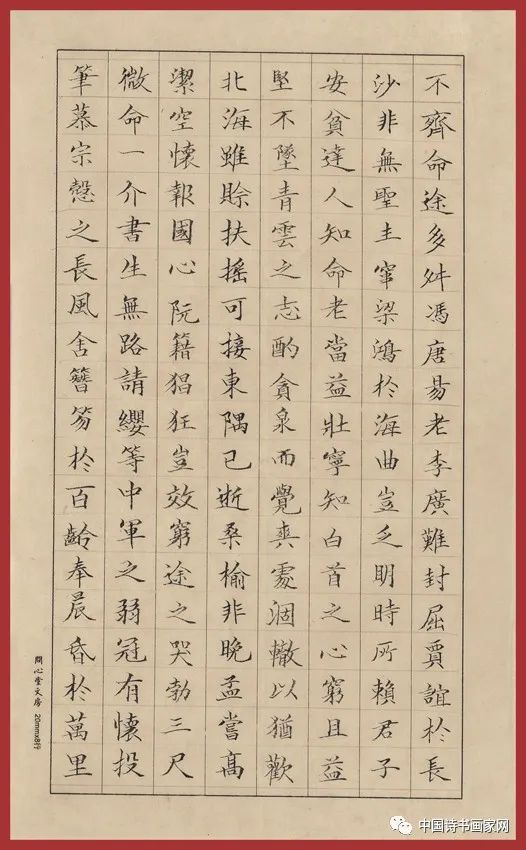 不齊命途多舛馮唐易老李廣難封屈賈誼於長
沙非無聖主竄梁鴻於海曲豈乏明時所賴君子
安貧達人知命老當益壯寧知白首之心窮且益
堅不墜青雲之志酌貪泉而覺爽處涸轍以猶歡
北海雖賒扶搖可接東隅已逝桑榆非晚孟嘗高
潔空懷報國心阮籍猖狂豈效窮途之哭勃三尺
微命一介書生無路請纓等中軍之弱冠有懷投
筆慕宗愨之長風舍簪笏於百齡奉晨昏於萬里
問心堂文房 20mmx8行
中国诗书画家网